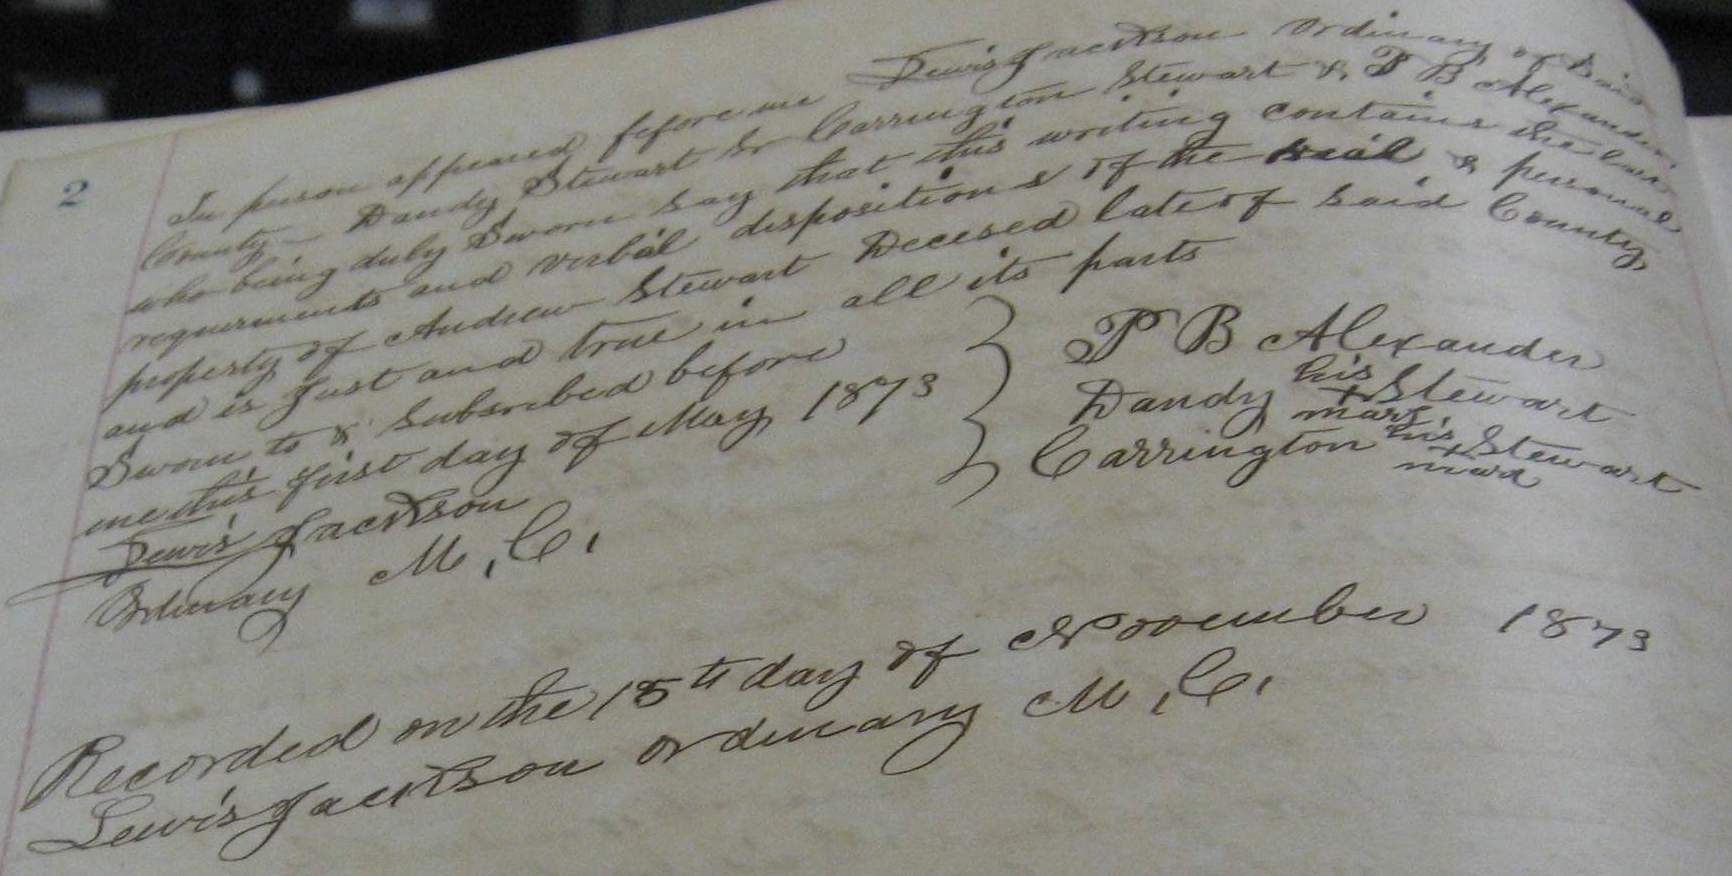 2
In person appeared before me Lewis Jackson Ordinary of Said
County – Dandy Stewart & Carrington Stewart & P B Alexander
who being duly Sworn Say that this writing contains the last
requirments and virbal dispositions of the real & personal
property of Andrew Stewart Decesed late of said County
and is Just and true in all its parts
Sworn to & Subscribed before
me this first day of May 1873
Lewis Jackson
Ordinary M, C,
P B Alexander
Dandy his + mark Stewart
Carrington his + mark Stewart
Recorded on the 18th day of November 1873
Lewis Jackson ordinary M, C,